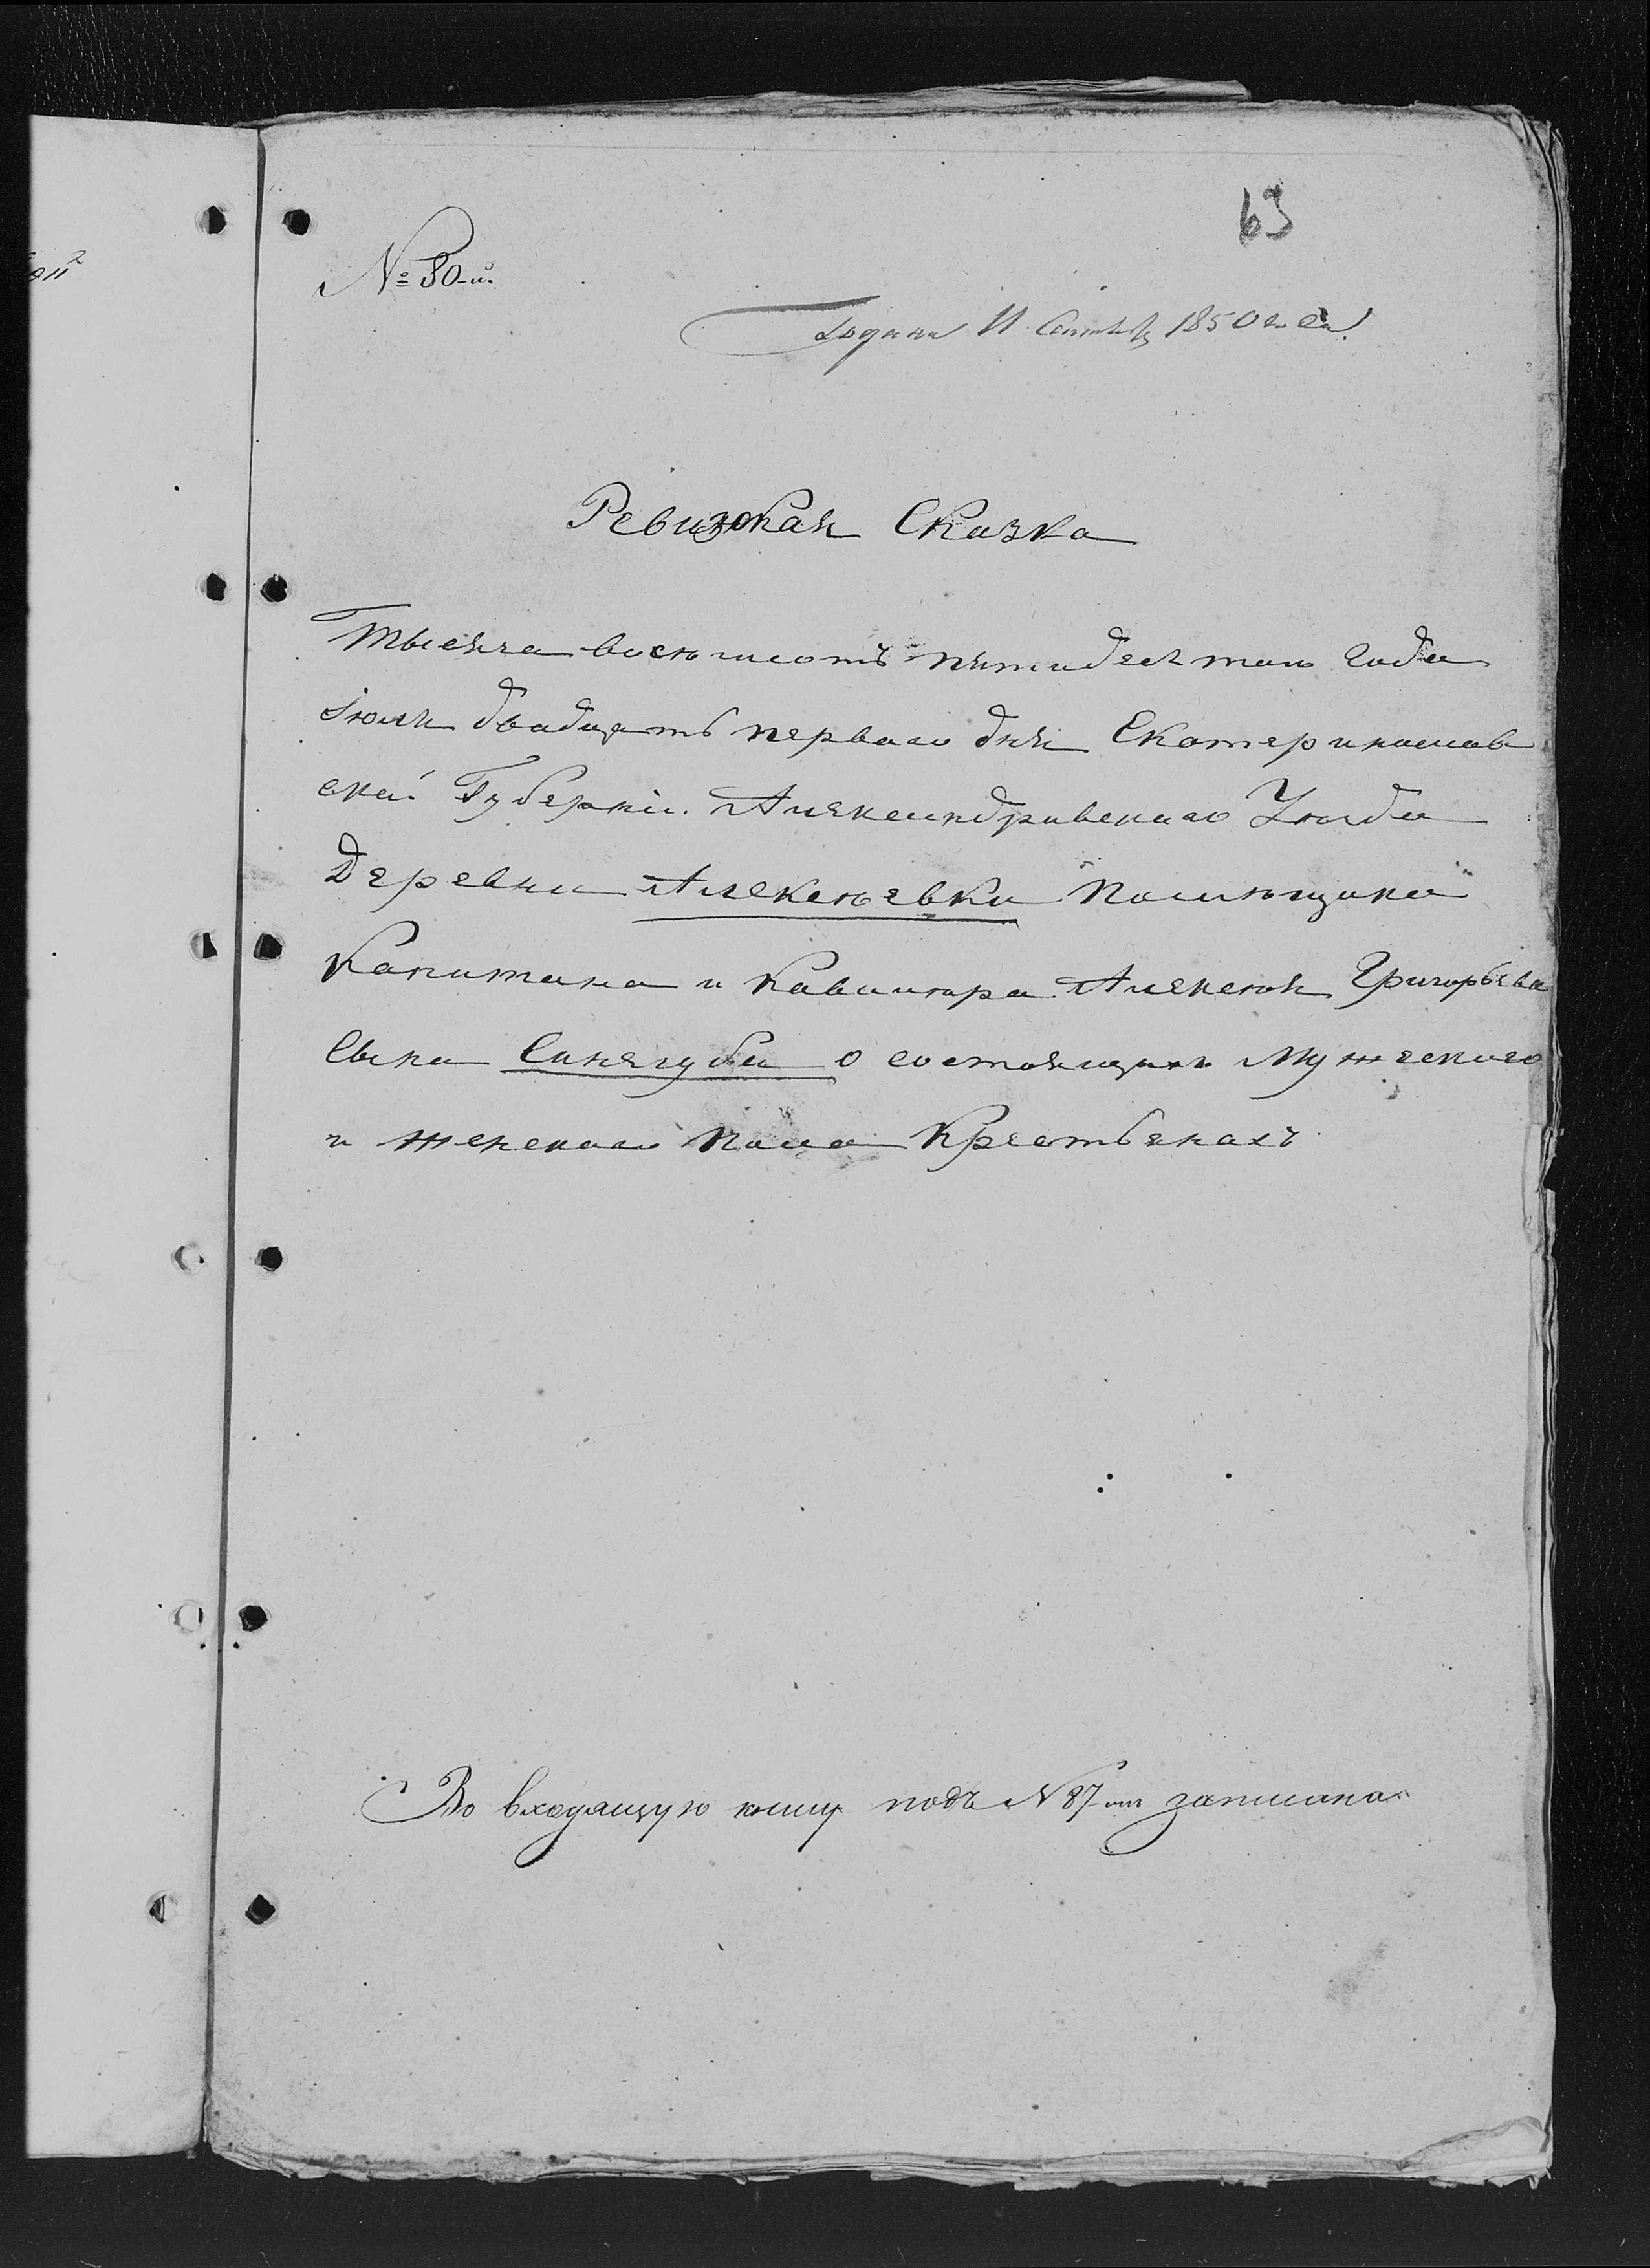 63
№ 80-й.
Подана 11 Сентября 1850 года
Ревизская Сказка
Тысяча восемьсотъ пятидесятаго года
Іюля двадцать перваго дня Екатеринослав
ской Губерніи. Александровскаго Уѣзда
Деревни Алексѣевки помѣщика
Капитана и Кавалера Алексѣя Григорьева
Сына Синягуба о состоящихъ Мужескаго
и женскаго пола Крестьянахъ.
Во входящую книгу подъ N 87-мъ записана